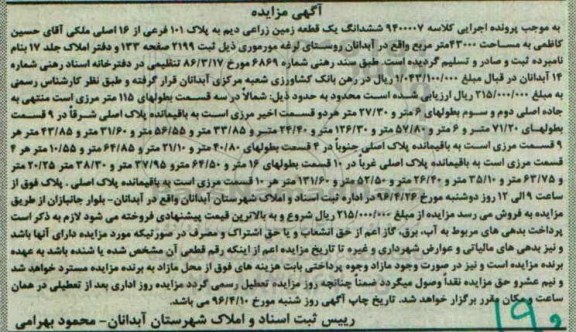 آگهی مزایده
به موجب پرونده اجرایی کلاسه ۹۴۰۰۰۰۷ ششدانگ یک قطعه زمین زراعی دیم به پلاک ۱۰۱ فرعی از ۱۶ اصلی ملکی آقای حسین
کاظمی به مساحت ۴۳۰۰۰متر مربع واقع در آبدانان روستای لرغه مورموری ذیل ثبت ۲۱۹۹ صفحه ۱۳۳ و دفتر املاک جلد ۱۷ بنام
نامبرده ثبت و صادر و تسلیم گردیده است. طبق سند رهنی شماره ۶۸۶۹ مورخ ۸۶/۳/۱۷ تنظیمی در دفترخانه اسناد رهنی شماره
۱۴ آبدانان در قبال مبلغ ۱/۰۴۳/۱۰۰/۰۰۰ ریال در رهن بانک کشاورزی شعبه مرکزی آبدانان قرار گرفته و طبق نظر کارشناس رسمی
به مبلغ ۲۱۵/۰۰۰/۰۰۰ ریال ارزیابی شده است محدود به حدود ذیل: شمالاً در سه قسمت بطولهای ۱۱۵ متر مرزی است منتهی به
جاده اصلی دوم و سوم بطولهای ۶ متر و ۲۷/۳۰ متر هردو قسمت اخیر مرزی است به باقیمانده پلاک اصلی شرقاً در ۹ قسمت
بطولهای ۷۱/۲۰ متر و ۶ متر و ۵۷/۸۰ متر و ۱۲۶/۳۰ متر و ۲۴/۴۰ متر و ۳۳/۸۵ متر و ۵۶/۵۵ متر و ۳۱/۶۰ متر و ۴۳/۸۵ متر هر
۹ قسمت مرزی است به باقیمانده پلاک اصلی جنوباً در ۴ قسمت بطولهای ۴۰/۸۰ متر و ۲۱/۱۰ متر و ۶۴/۸۵ متر و ۱۰/۵۵ متر هر ۴
قسمت مرزی است به باقیمانده پلاک اصلی غرباً در ۱۰ قسمت بطولهای ۱۶ متر و ۶۴/۵۰ مترو ۳۷/۹۵ متر و ۳۸/۳۰ متر ۲۰/۲۵ متر
و ۶۳/۷۵ متر و ۳۵/۱۰ متر و ۲۶/۴۰ متر و ۵۲/۵۰ متر و ۱۳۱/۶۰ متر هر ۱۰ قسمت مرزی است به باقیمانده پلاک اصلی . پلاک فوق از
ساعت ۹ الی ۱۲ روز دوشنبه مورخ ۹۶/۴/۲۶ در اداره ثبت اسناد و املاک شهرستان آبدانان واقع در آبدانان- بلوار جانبازان از طریق
مزایده به فروش می رسد مزایده از مبلغ ۲۱۵/۰۰۰/۰۰۰ ریال شروع و به بالاترین قیمت پیشنهادی فروخته می شود لازم به ذکر است
پرداخت بدهی های مربوط به آب، برق، گاز اعم از حق انشعاب و یا حق اشتراک و مصرف در صورتیکه مورد مزایده دارای آنها باشد
و نیز بدهی های مالیاتی و عوارض شهرداری و غیره تا تاریخ مزایده اعم از اینکه رقم قطعی آن مشخص شده یا شنده باشد به عهده
برنده مزایده است و نیز در صورت وجود مازاد وجوه پرداختی بابت هزینه های فوق از محل مازاد به برنده مزایده مسترد خواهد شد
و نیم عشرو حق مزایده نقداً وصول میگردد ضمناً چنانچه روز مزایده تعطیل رسمی گردد مزایده روز اداری بعد از تعطیلی در همان
ساعت و مکان مقرر برگزار خواهد شد. تاریخ چاپ آگهی روز شنبه مورخ ۹۶/۴/۱۰ می باشد.
رییس ثبت اسناد و املاک شهرستان آبدانان- محمود بهرامی